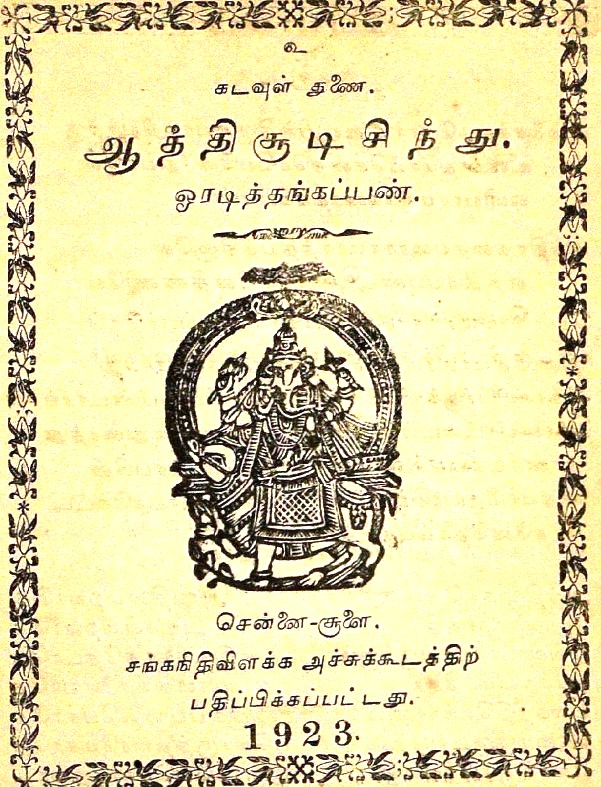 உ
கடவுள் துணை.
ஆத்திசூடிசிந்து.
ஓரடித்தங்கப்பண்.
சென்னை-சூளை.
சங்கநிதிவிளக்க அச்சுக்கூடத்திற்
பதிப்பிக்கப்பட்டது.
1923.